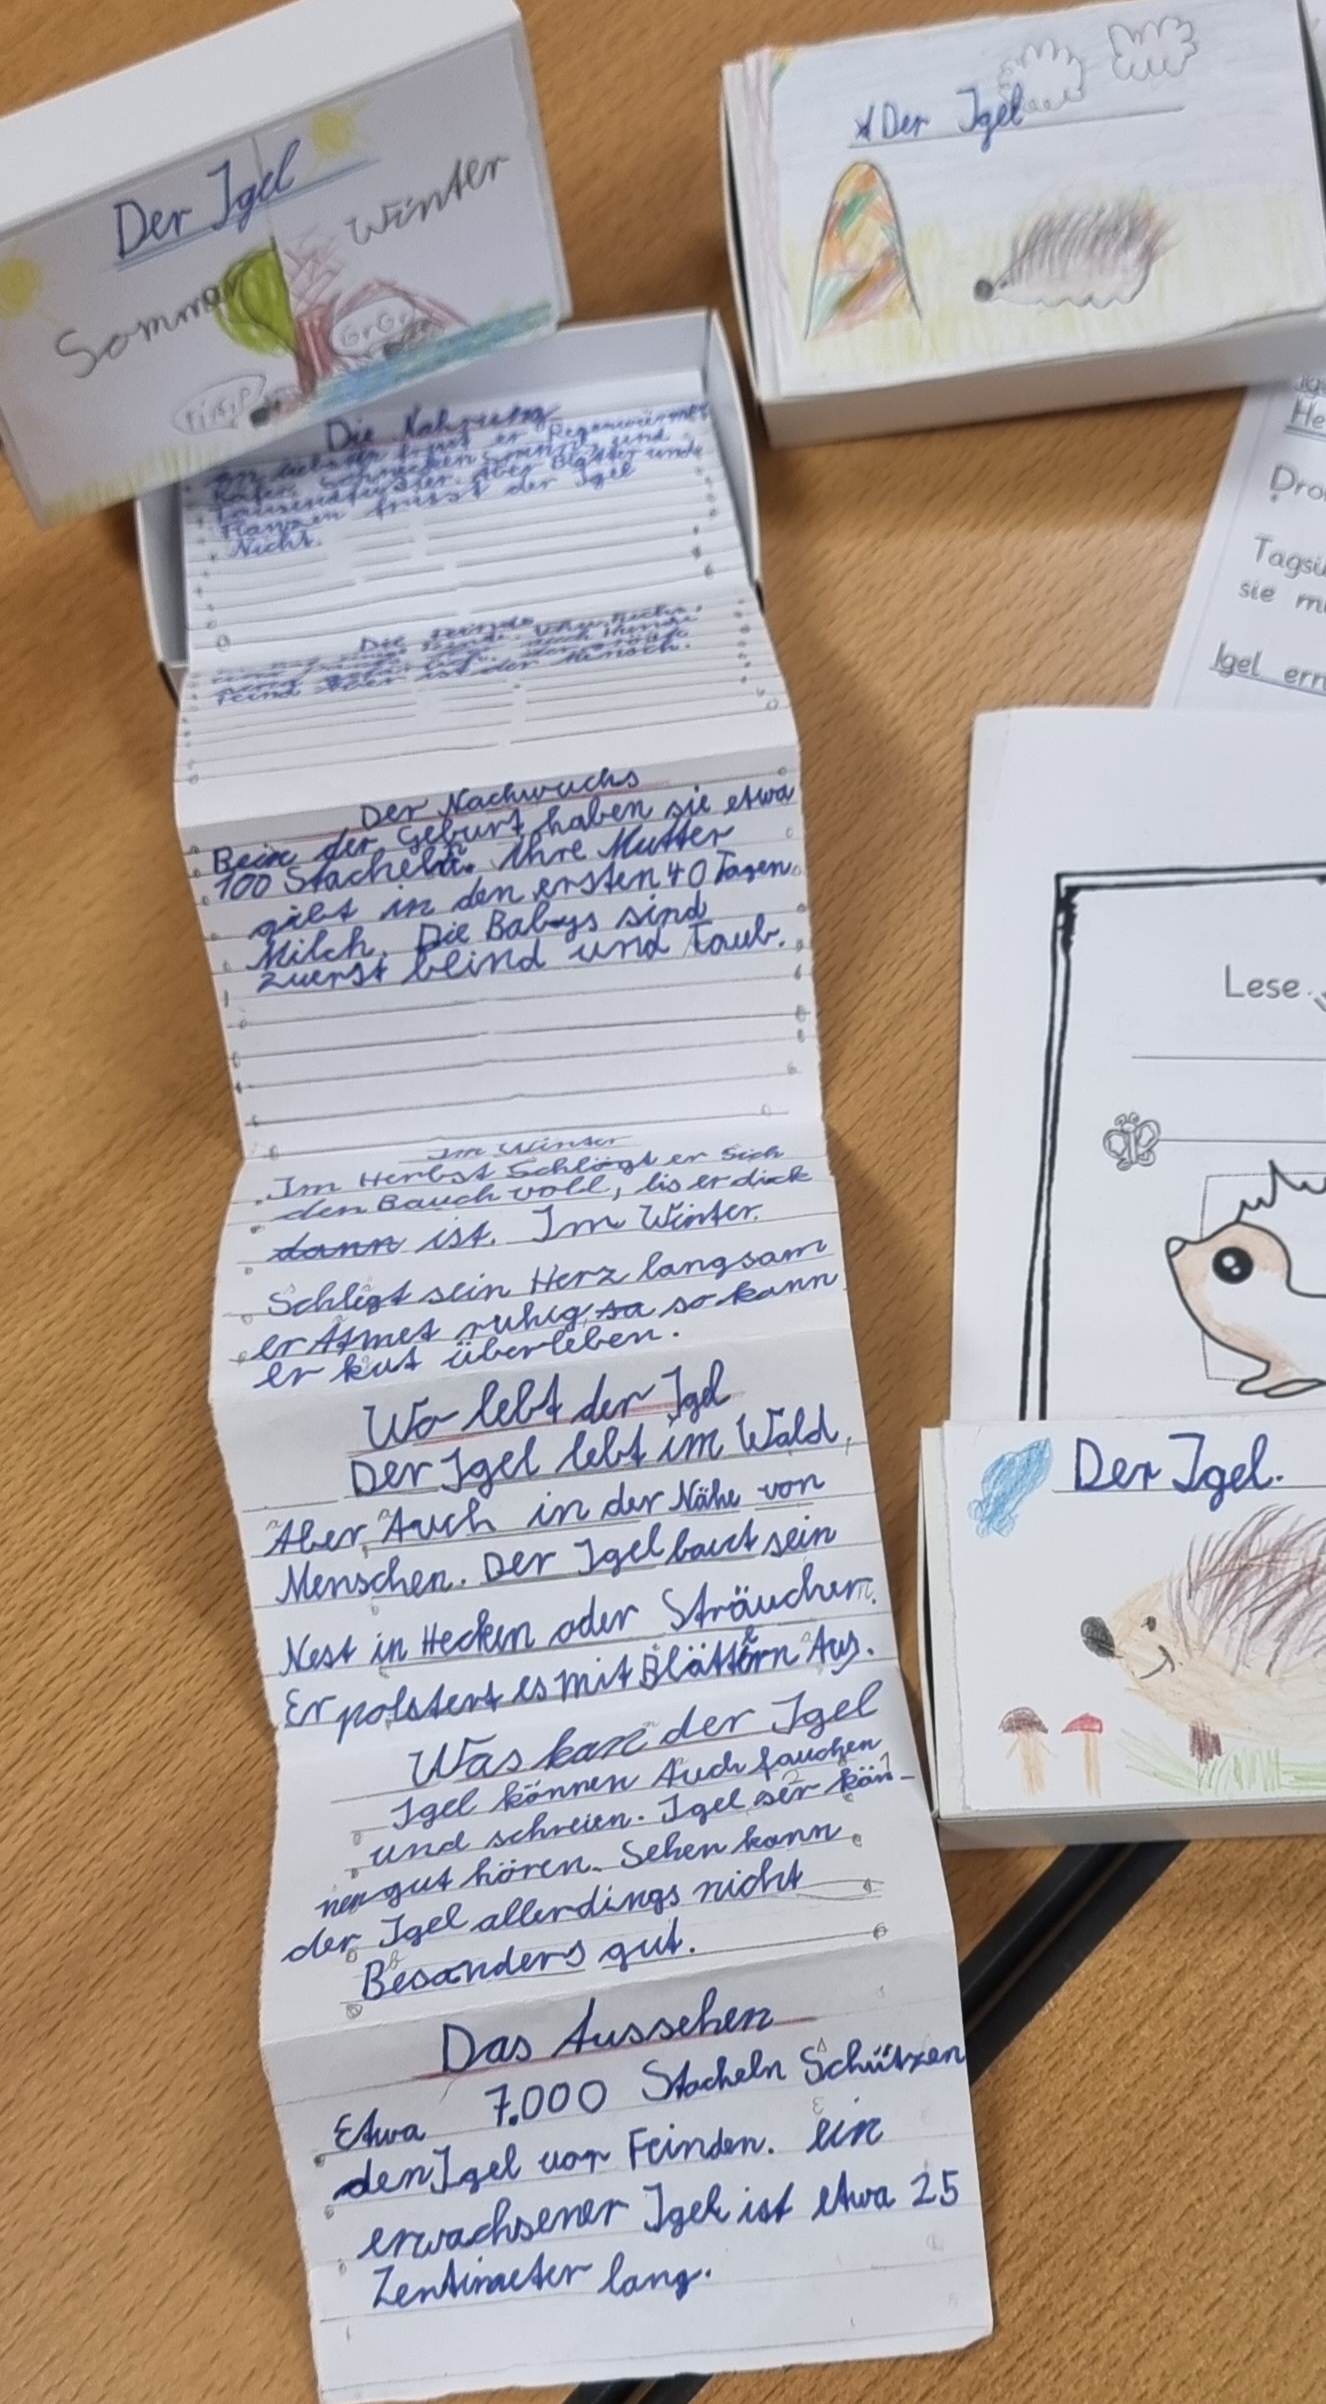 Der Igel
Sommer
Winter
Der Igel
Die Nahrung
frisst er Regenwürmer
Käfer, Schnecken und
Tausendfüßler. Aber Blätter und
Flanzen frisst der Igel
Nicht.
Die Feinde
Feind Aber ist der Mensch.
Der Nachwuchs
Beim der Geburt haben sie etwa
100 Stacheln. Ihre Mutter
gibt in den ersten 40 Tagen
Milch. Die Babys sind
zuerst blind und Taub.
Im Winter
Im Herbst Schlägt er sich
den Bauch voll, bis er dick
dann ist. Im Winter
Schlägt sein Herz langsam
er Atmet ruhig sa so kann
er kut überleben.
Wo lebt der Igel
Der Igel lebt im Wald,
Aber, Auch in der Nähe von
Menschen. Der Igel baut sein
Nest in Hecken oder Sträucher.
Er polstert es mit Blättern Aus.
Was kan der Igel
Igel können Auch fauchen
und schreien. Igel ser kön-
nen gut hören. Sehen kann
der Igel allerdings nicht
Besonders gut.
Das Aussehen
Etwa 7.000 Stacheln Schützen
den Igel vor Feinden. ein
erwachsener Igel ist etwa 25
Zentimeter lang.
He
Dro
Tagsü
sie m
Igel ern
Lese
Der Igel.